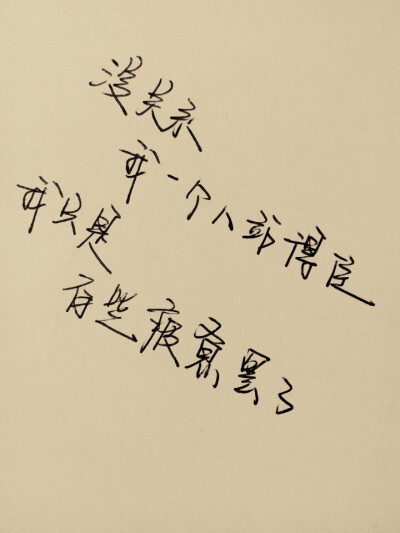 没关系
我一个人站得直
我只是
有些疲惫罢了